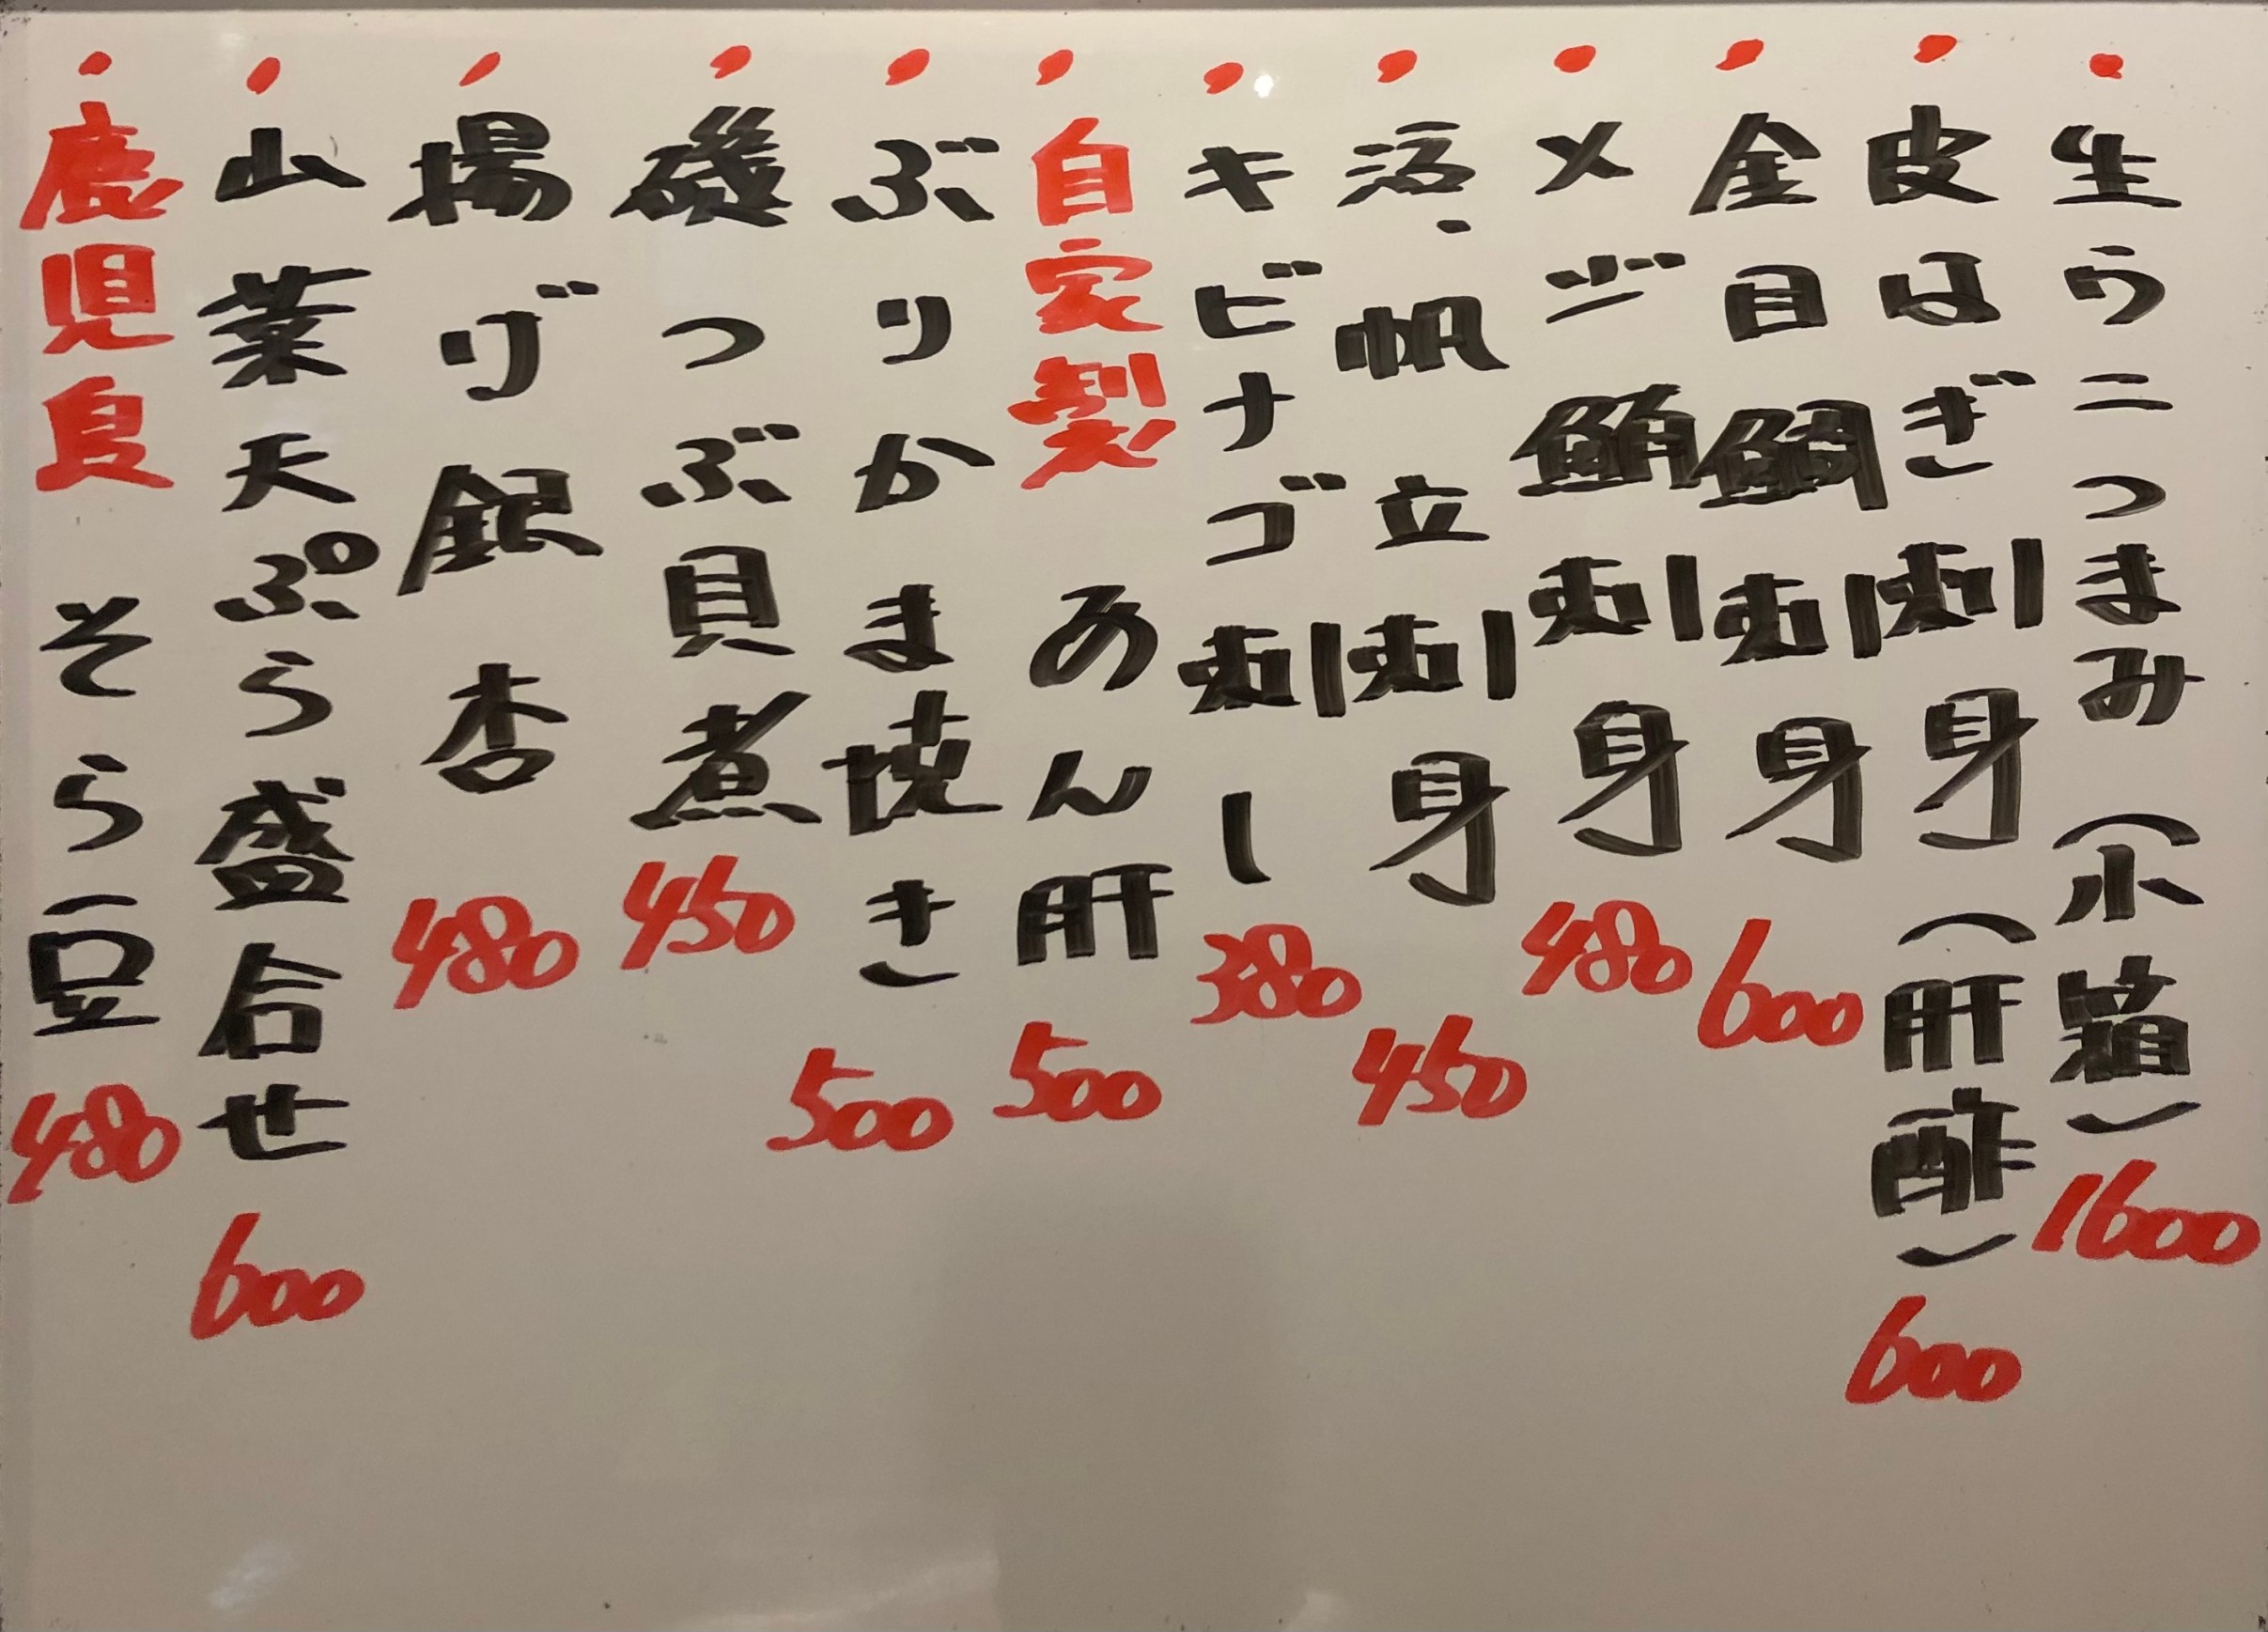 ・生うニつまみ（小箱）1600
・皮はぎ刺身（肝酢）600
・金目鯛刺身 600
・メジ鮪刺身 480
・活・帆立刺身 450
・キビナゴ刺し 380
・自家製 あん肝 500
・ぶりかま焼き 500
・磯つぶ貝煮 450
・揚げ銀杏 480
・山菜天ぷら盛合せ 600
・鹿児島 そら豆 480